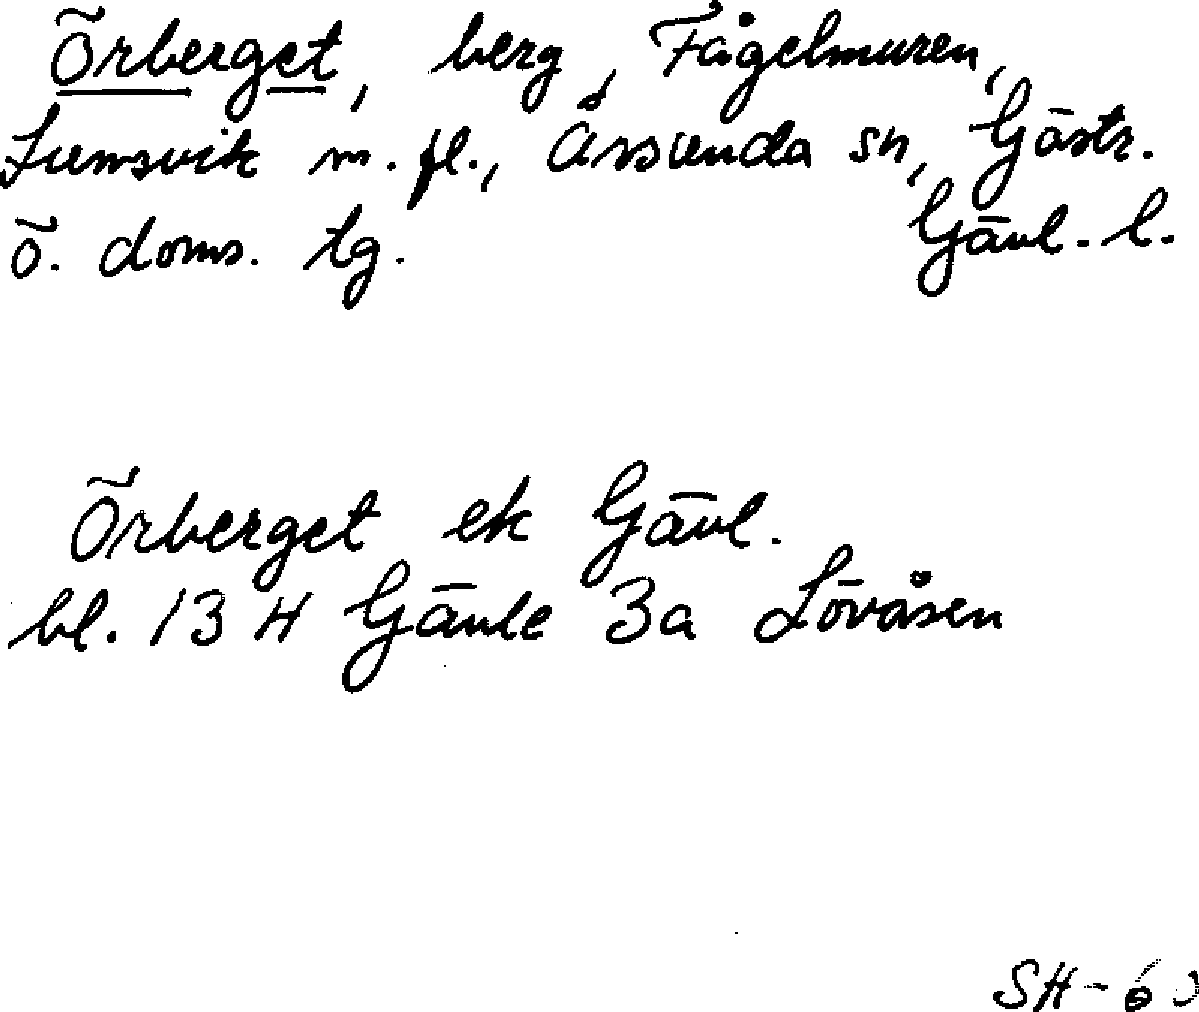 Örberget, berg, Fågelmuren,
Iremsvik m. fl., Årsunda sn, Gästr.
ö. doms. tg. Gävl. l.
Örberget ek Gävl.
bl. 13 H Gävle 3a Lövåsen
SH-60